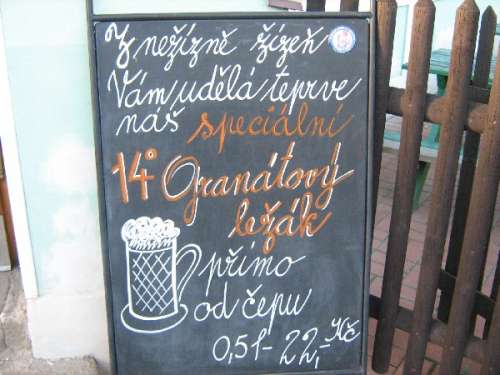 Z nežízně žízeň
Vám udělá teprve
náš speciální
14° Granátový
ležák
přímo
od čepu
0,5l - 22,- Kč